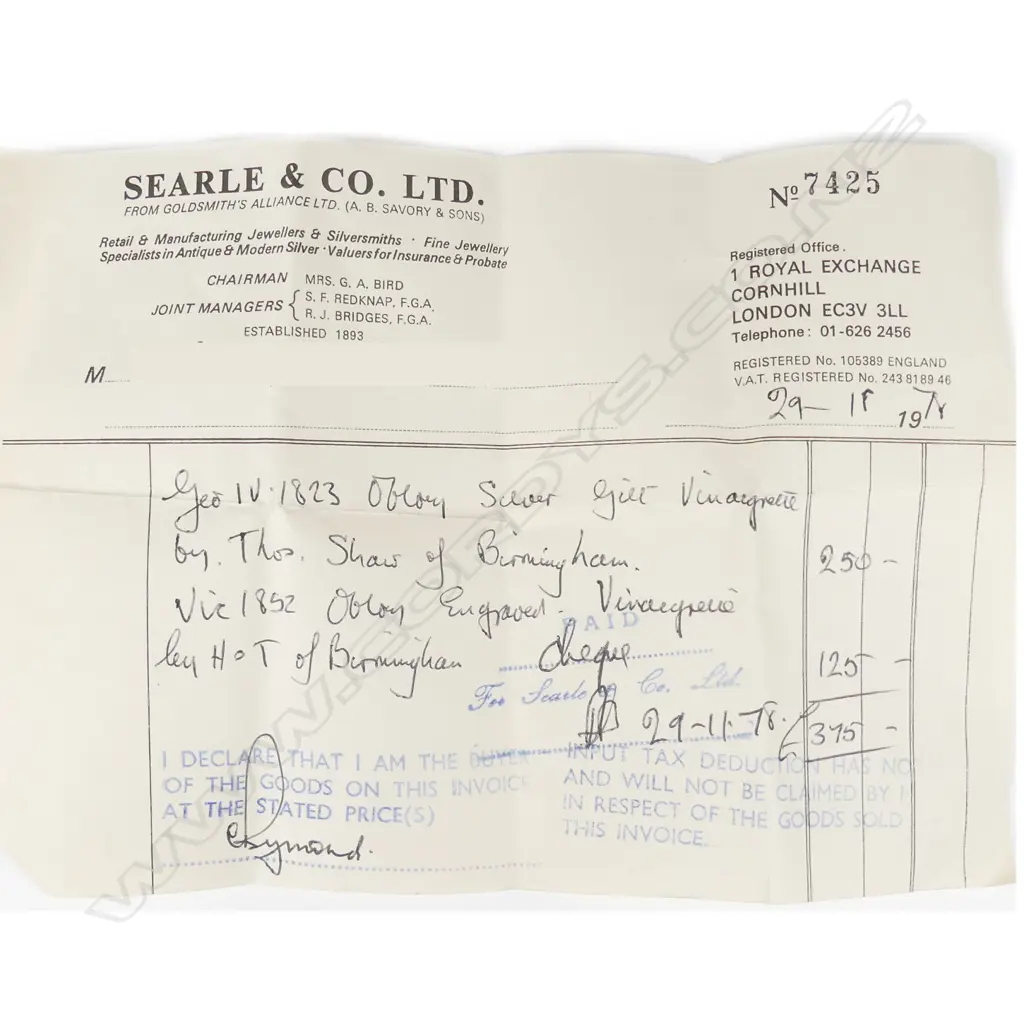 SEARLE & CO. LTD.
FROM GOLDSMITH'S ALLIANCE LTD. (A. B. SAVORY & SONS)
Retail & Manufacturing Jewellers & Silversmiths · Fine Jewellery
Specialists in Antique & Modern Silver · Valuers for Insurance & Probate
CHAIRMAN MRS. G. A. BIRD
JOINT MANAGERS { S. F. REDKNAP, F.G.A.
R. J. BRIDGES, F.G.A.
ESTABLISHED 1893
Nº 7425
Registered Office.
1 ROYAL EXCHANGE
CORNHILL
LONDON EC3V 3LL
Telephone: 01-626 2456
REGISTERED No. 105389 ENGLAND
V.A.T. REGISTERED No. 243 8189 46
M
29-11 1978
Geo IV. 1823 Oblong Silver Gilt Vinaigrette
by. Thos. Shaw of Birmingham. 250 -
Vic 1852 Oblong Engraved. Vinaigrette
by H & T of Birmingham 125 -
PAID
Cheque
For Searle & Co. Ltd.
29-11-78. £375 -
I DECLARE THAT I AM THE BUYER
OF THE GOODS ON THIS INVOICE
AT THE STATED PRICE(S)
INPUT TAX DEDUCTION HAS NO
AND WILL NOT BE CLAIMED BY
IN RESPECT OF THE GOODS SOLD
THIS INVOICE.
WWW.CORDYS.CO.NZ